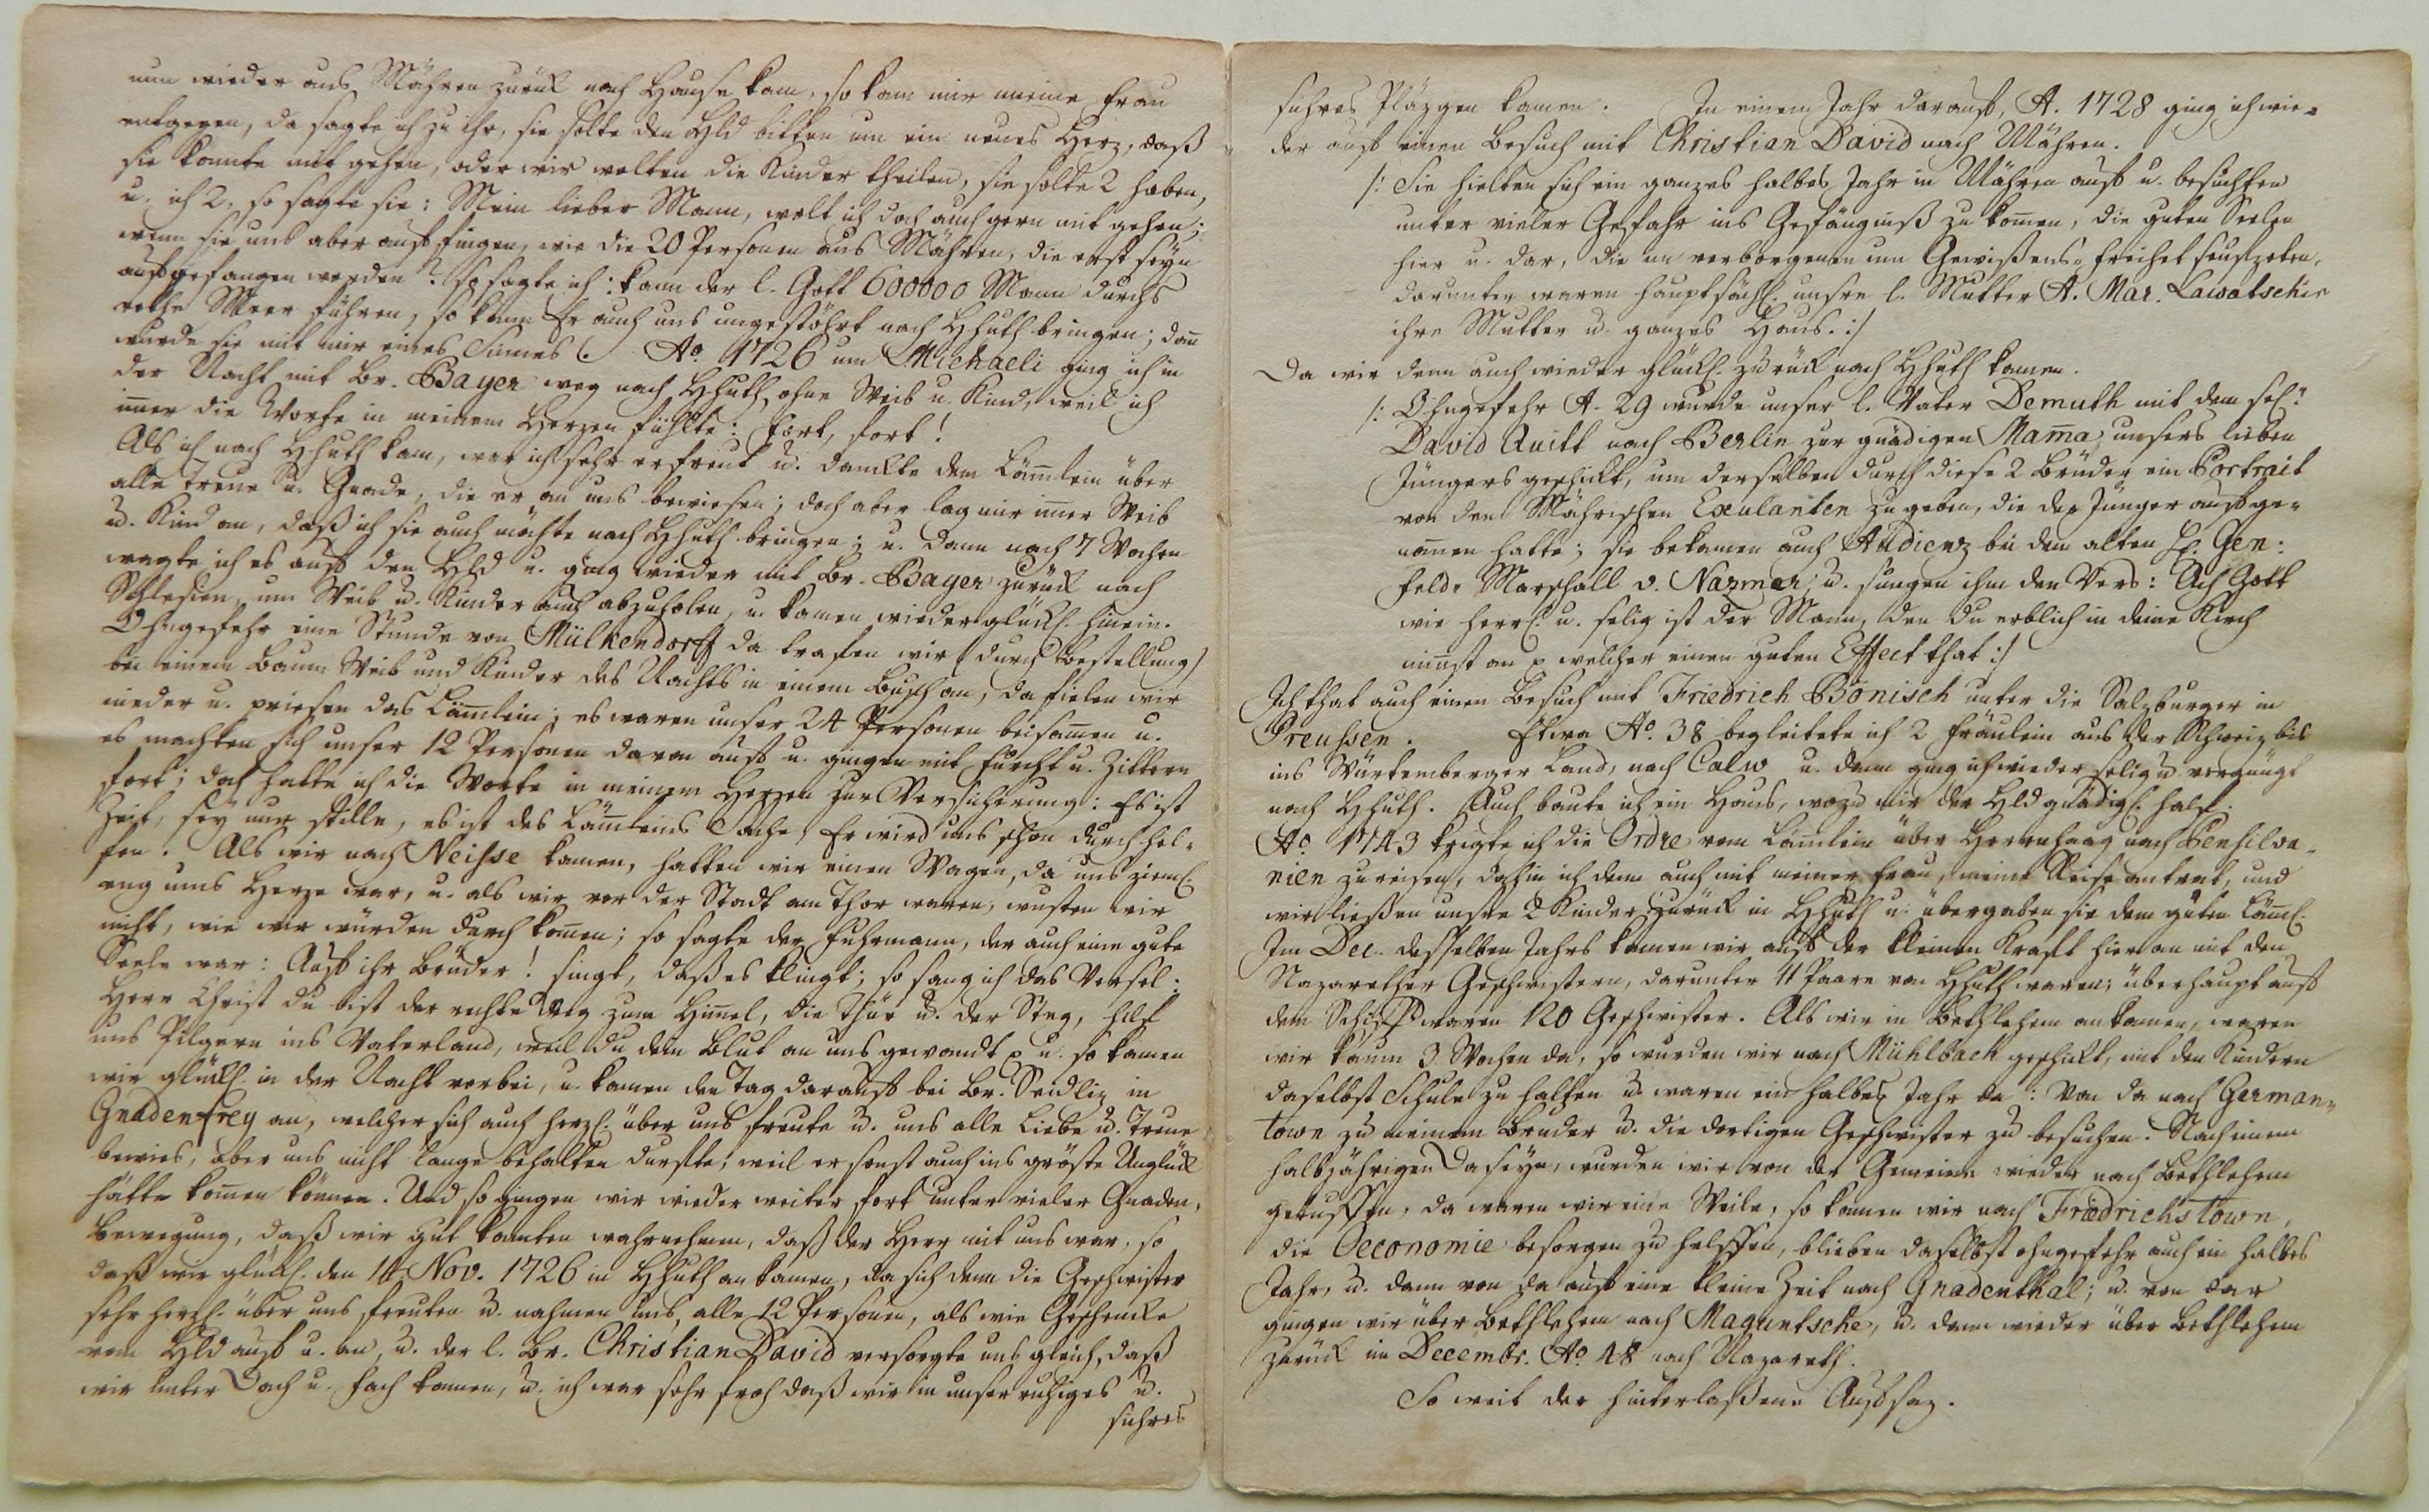 nun wieder aus Mähren zurük nach Hause kam, so kam mir meine Frau
entgegen, da sagte ich zu ihr, sie solte den Hld bitten um ein neues Herz, daß
sie konnte mit gehen, oder wir wolten die Kinder theilen, sie solte 2 haben,
u. ich 2, so sagte sie: Mein lieber Mann, wolt ich doch auch gern mit gehen;
wenn sie uns aber auf fingen, wie die 20 Personen aus Mähren, die erst seyn
aufgefangen worden? so sagte ich: kann der l. Gott 600000 Mann durchs
rothe Meer führen, so kann Er auch uns ungestöhrt nach Hhuth bringen; dañ
wurde sie mit mir eines Sinnes. Ao. 1726 um Michaeli ging ich in
der Nacht mit Br. Bayer weg nach Hhuth, ohne Weib u. Kind, weil ich
im̄er die Worte in meinem Herzen fühlte: fort, fort!
Als ich nach Hhuth kam, war ich sehr erfreut u. dankte dem Läm̄lein über
alle Treue u. Gnade, die er an uns bewiesen; doch aber lag mir im̄er Weib
u. Kind an, daß ich sie auch möchte nach Hhuth bringen; u. dann nach 7 Wochen
wagte ich es auf den Hld u. ging wieder mit Br. Bayer zurück nach
Schlesien, um Weib u. Kinder auch abzuholen, u. kamen wieder glückl. hinein.
Ohngefehr eine Stunde von Mülkendorf da trafen wir (durch Bestellung)
bei einem Baum Weib und Kinder des Nachts in einem Busch an, da fielen wir
nieder u. priesen das Läm̄lein; es waren unser 24 Personen beisam̄en u.
es machten sich unser 12 Personen davon auf u. gingen mit Furcht u. Zittern
fort; doch hatte ich die Worte in meinem Herzen zur Versicherung: Es ist
Zeit, sey nur stille, es ist des Läm̄leins Sache, Er wird uns schon durch hel-
fen. Als wir nach Neisse kamen, hatten wir einen Wagen, da uns zieml.
eng ums Herze war, u. als wir vor der Stadt am Thor waren, wusten wir
nicht, wie wir würden durch kom̄en; so sagte der Fuhrmann, der auch eine gute
Seele war: Auf ihr Brüder! singt, daß es klingt; so sang ich das Versel:
Herr Christ du bist der rechte Weg zum Him̄el, die Thür u. der Steg, hilf
uns Pilgern ins Vaterland, weil du dein Blut an uns gewandt p u. so kamen
wir glückl. in der Nacht vorbei, u. kamen den Tag darauf bei Br. Seidliz in
Gnadenfrey an, welcher sich auch herzl. über uns freute u. uns alle Liebe u. Treue
bewies, aber uns nicht lange behalten durfte, weil er sonst auch ins gröste Unglück
hätte kom̄en können. Und so gingen wir wieder weiter fort unter vieler Gnaden-
Bewegung, daß wir gut konnten wahrnehmen, daß der Herr mit uns war, so
daß wir glückl. den Nov. 1726 in Hhuth ankamen, da sich denn die Geschwister
sehr herzl. über uns freuten u. nahmen uns, alle 12 Personen, als wie Geschenke
vom Hld auf u. an, u. der l. Br. Christian David versorgte uns gleich, daß
wir unter Dach u. Fach kamen, u. ich war sehr froh daß wir in unser ruhiges u.
sichres
sichres Pläzgen kamen. In einem Jahr darauf, A. 1728 ging ich wie-
der auf einen Besuch mit Christian David nach Mähren.
/: Sie hielten sich ein ganzes halbes Jahr in Mähren auf u. besuchten
unter vieler Gefahr ins Gefängniß zu kom̄en, die guten Seelen
hier u. dar, die im verborgenen um Gewißens-Freiheit seufzeten,
darunter waren hauptsächl. unsre l. Mutter A. Mar. Lawatschin
ihre Mutter u. ganzes Haus. :/
Da wir denn auch wieder glückl. zurück nach Hhuth kamen.
/: Ohngefehr A. 29 wurde unser l. Vater Demuth mit dem sel.
David Quitt nach Berlin zur gnädigen Mam̄a unsers lieben
Jüngers geschikt, um derselben durch diese 2 Brüder ein Portrait
von den Mährischen Exulanten zu geben, die der Jünger aufge-
nom̄en hatte; sie bekamen auch Audienz bei dem alten H. Gen:
Feld-Marschall v. Nazmer, u. sungen ihm den Vers: Ach Gott
wie herrl. u. selig ist der Mann, den du erblich in deine Kirch
nim̄st an p welcher einen guten Effect that :/
Ich that auch einen Besuch mit Friedrich Bönisch unter die Salzburger in
Preussen. Etwa Ao. 38 begleitete ich 2 Fräulein aus der Schweiz bis
ins Würtemberger Land, nach Calw u. dann ging ich wieder selig u. vergnügt
nach Hhuth. Auch baute ich ein Haus, wozu mir der Hld gnädigl. half.
Ao. 1743 krigte ich die Ordre vom Läm̄lein über Herrnhaag nach Pensilva-
nien zu reisen, dahin ich denn auch mit meiner Frau, meine Reise antrat, und
wir ließen unsre 2 Kinder zurück in Hhuth u. übergaben sie dem guten Läm̄l.
Im Dec. desselben Jahrs kamen wir auf der kleinen Kraft hier an mit den
Nazarether Geschwistern, darunter 11 Paare von Hhuth waren; überhaupt auf
dem Schiff waren 120 Geschwister. Als wir in Bethlehem ankamen, waren
wir kaum 3. Wochen da, so wurden wir nach Mühlbach geschikt, mit den Kindern
daselbst Schule zu halten u. waren ein halbes Jahr da: Von da nach German-
town zu meinem Bruder u. die dortigen Geschwister zu besuchen. Nach einem
halbjährigen Daseyn, wurden wir von der Gemeine wieder nach Bethlehem
geruffen, da waren wir eine Weile, so kamen wir nach Friedrichstown,
die Oeconomie besorgen zu helffen, blieben daselbst ohngefehr auch ein halbes
Jahr, u. dann von da auf eine kleine Zeit nach Gnadenthal; u. von dar
gingen wir über Bethlehem nach Maguntsche, u. dann wieder über Bethlehem
zurück im Decembr. Ao. 48 nach Nazareth.
So weit der hinterlaßene Aufsaz.